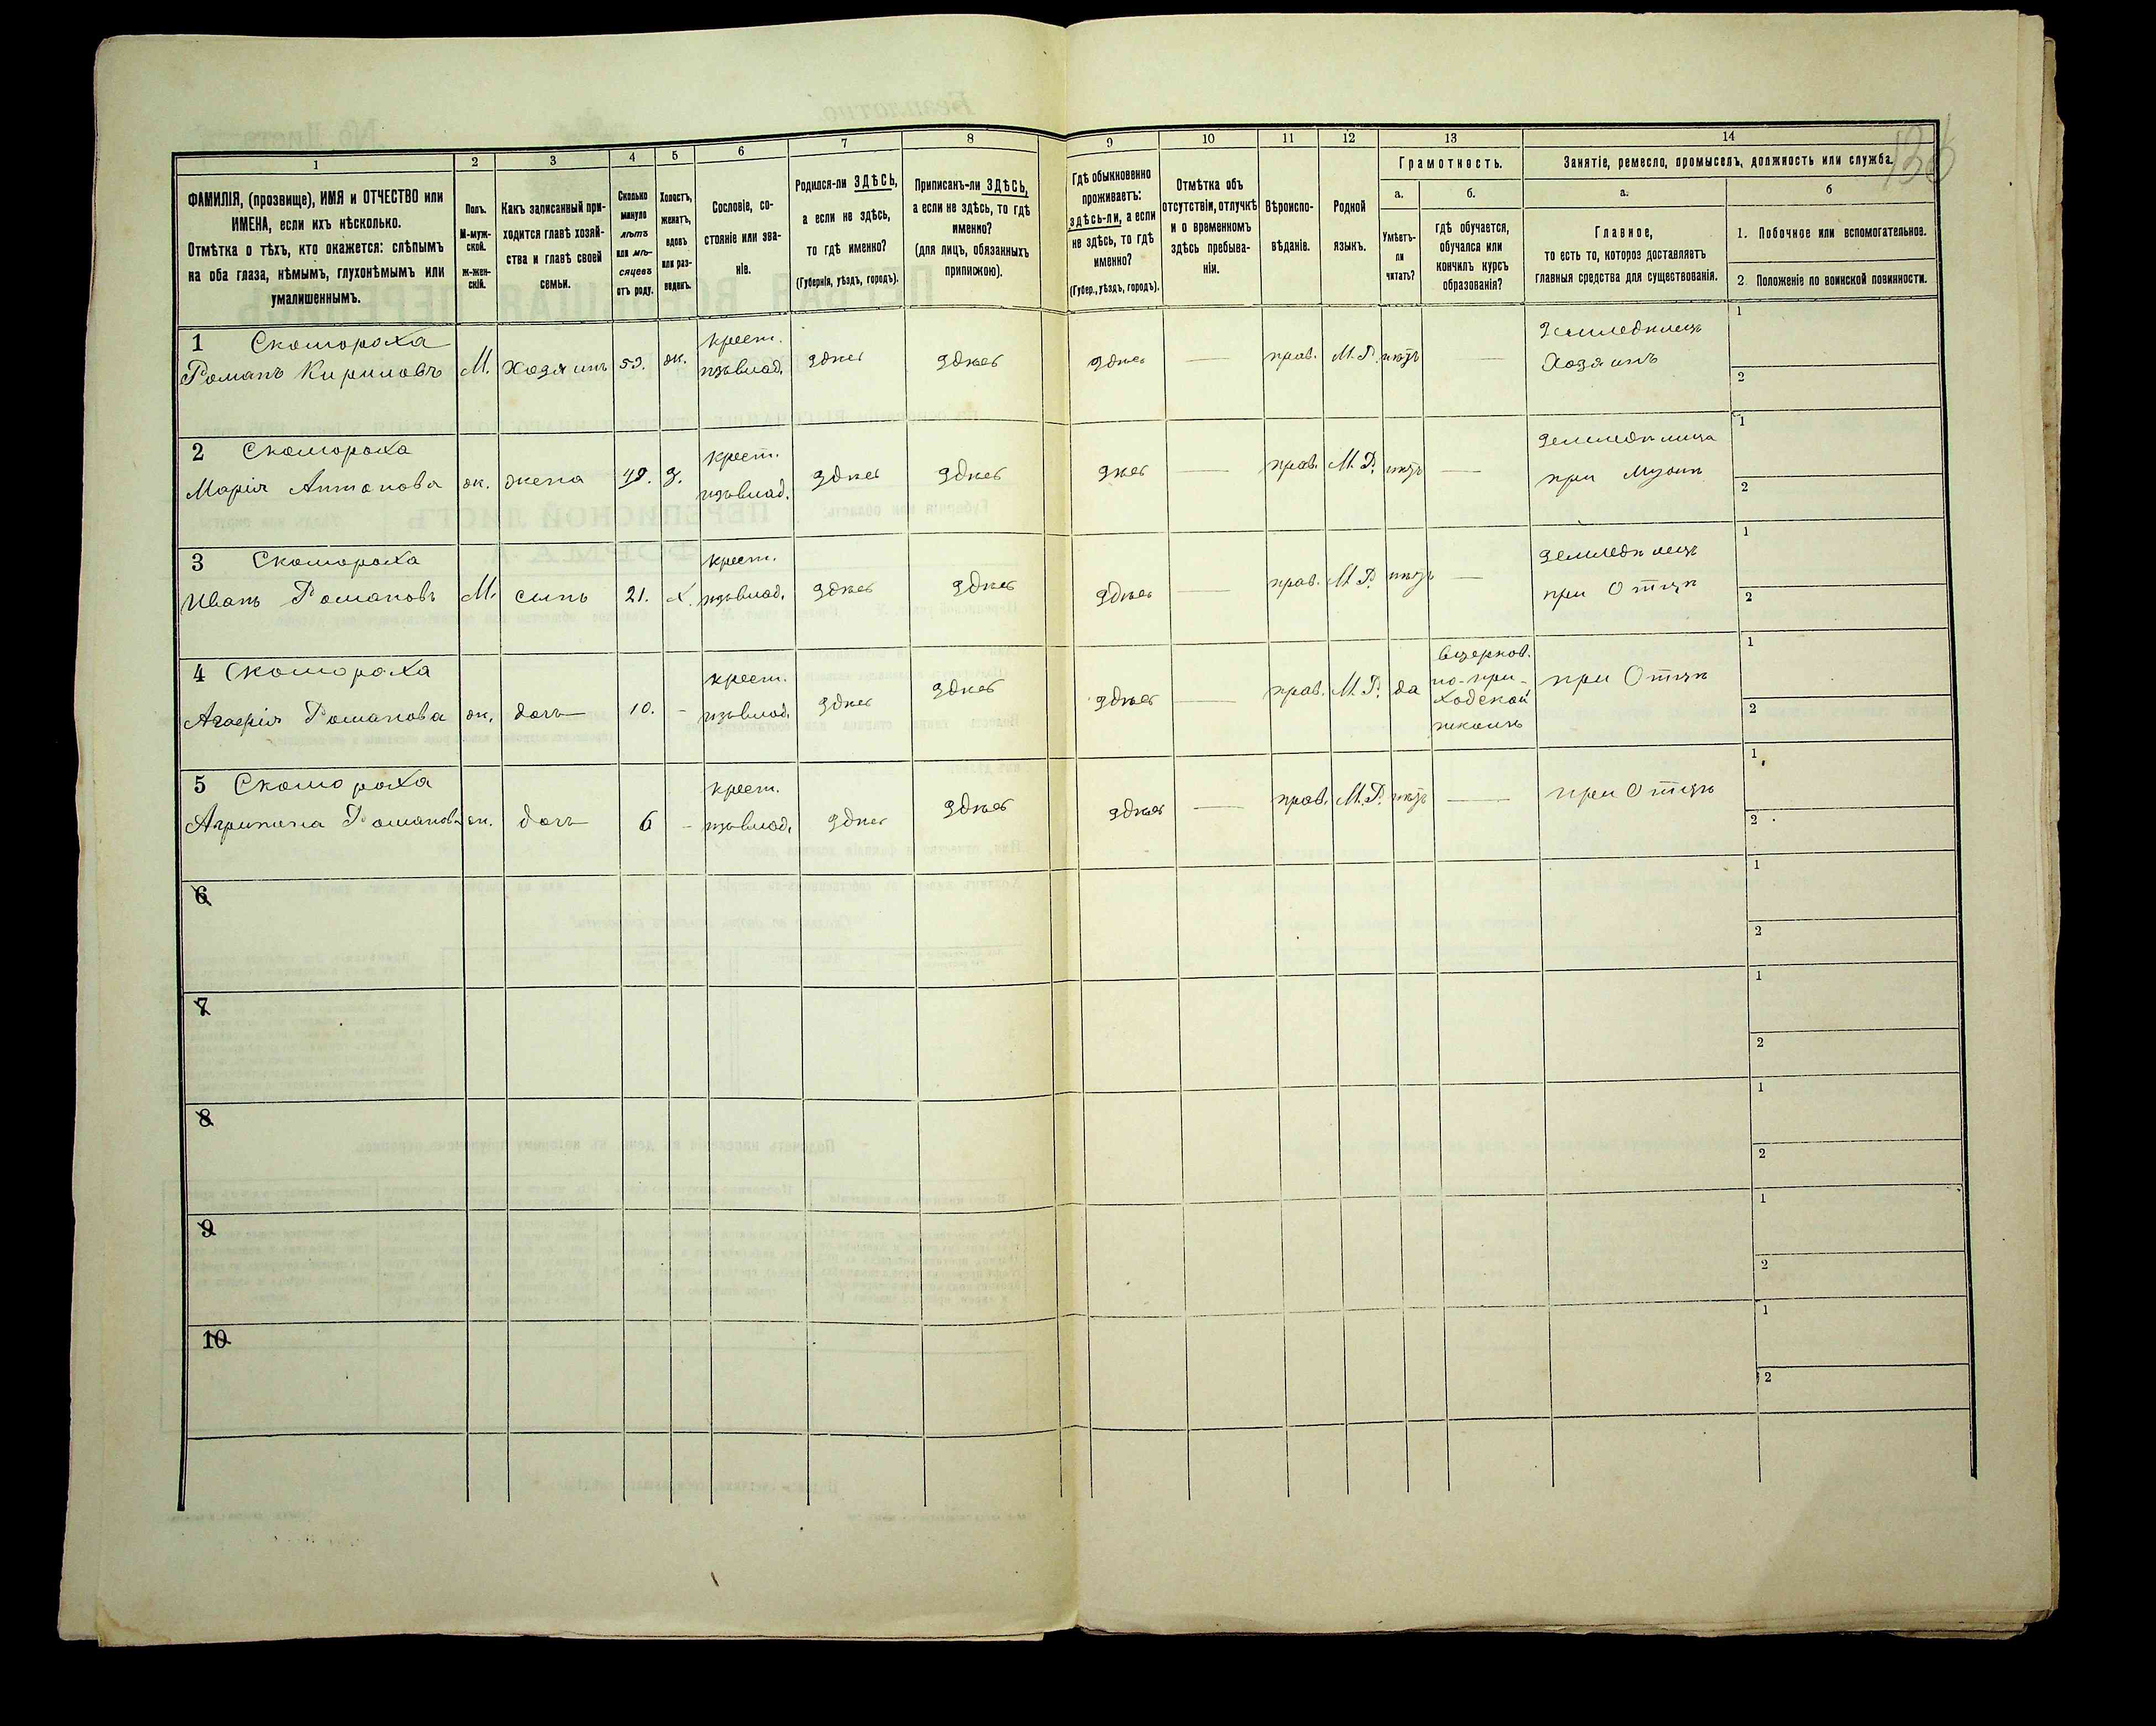 136
1 2 3 4 5 6 7 8 9 10 11 12 13 14
ФАМИЛІЯ, (прозвище), ИМЯ и ОТЧЕСТВО или
ИМЕНА, если ихъ нѣсколько.
Отмѣтка о тѣхъ, кто окажется: слѣпымъ
на оба глаза, нѣмымъ, глухонѣмымъ или
умалишеннымъ.
Полъ.
М-муж-
ской.
Ж-жен-
скій.
Какъ записанный при-
ходится главѣ хозяй-
ства и главѣ своей
семьи.
Сколько
минуло
лѣтъ
или мѣ-
сяцевъ
отъ роду.
Холостъ,
женатъ,
вдовъ
или раз-
веденъ.
Сословіе, со-
стояніе или зва-
ніе.
Родился-ли ЗДѢСЬ,
а если не здѣсь,
то гдѣ именно?
(Губернія, уѣздъ, городъ).
Приписанъ-ли ЗДѢСЬ,
а если не здѣсь, то гдѣ
именно?
(для лицъ, обязанныхъ
припискою).
Гдѣ обыкновенно
проживаетъ:
здѣсь-ли, а если
не здѣсь, то гдѣ
именно?
(Губер., уѣздъ, городъ).
Отмѣтка объ
отсутствіи, отлучкѣ
и о временномъ
здѣсь пребыва-
ніи.
Вѣроиспо-
вѣданіе.
Родной
языкъ.
Грамотность.
а.
Умѣетъ-
ли
читать?
б.
гдѣ обучается,
обучался или
кончилъ курсъ
образованія?
Занятіе, ремесло, промыселъ, должность или служба.
а.
Главное,
то есть то, которое доставляетъ
главныя средства для существованія.
б
1. Побочное или вспомогательное.
2. Положеніе по воинской повинности.
1 Скомороха
Романъ Кириловъ М. Хозяинъ 53. ж. крест. изъ влад. здѣсь здѣсь здѣсь — прав. М.Р. нѣтъ — Земледѣлецъ
Хозяинъ
1
2
2 Скомороха
Марія Антонова ж. жена 49. З. крест. изъ влад. здѣсь здѣсь здѣсь — прав. М.Р. нѣтъ — Земледѣлица
при Мужѣ
1
2
3 Скомороха
Иванъ Романовъ М. сынъ 21. х. крест. изъ влад. здѣсь здѣсь здѣсь — прав. М.Р. нѣтъ — Земледѣлецъ
при Отцѣ
1
2
4 Скомороха
Агафія Романова ж. дочь 10. - крест. изъ влад. здѣсь здѣсь здѣсь — прав. М.Р. да вцерков.
но-при-
ходской
школѣ
при Отцѣ
1
2
5 Скомороха
Агрипина Романова ж. дочь 6 - крест. изъ влад. здѣсь здѣсь здѣсь — прав. М.Р. нѣтъ — при Отцѣ
1
2
6
1
2
7
1
2
8
1
2
9
1
2
10
1
2